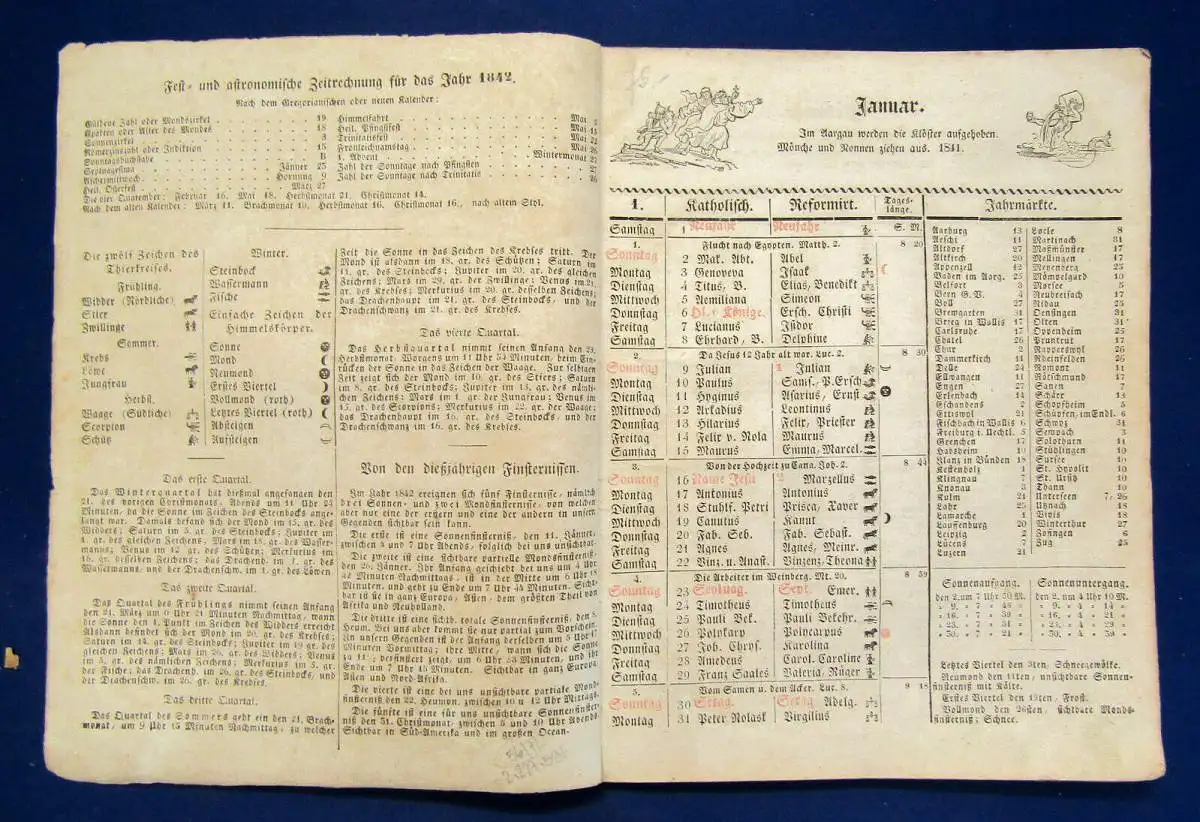 Fest- und astronomische Zeitrechnung für das Jahr 1842.
Nach dem Gregorianischen oder neuen Kalender:
Güldene Zahl oder Mondszirkel 19
Epakten oder Alter des Mondes 18
Sonnenzirkel 3
Römerzinszahl oder Indiktion 15
Sonntagsbuchstabe B
Septuagesima Jänner 23
Aschermittwoch Hornung 9
Heil. Osterfest März 27
Himmelfahrt Mai 5
Heil. Pfingstfest Mai 15
Trinitatisfest Mai 22
Fronleichnamstag Mai 26
1. Advent Wintermonat 27
Zahl der Sonntage nach Pfingsten 27
Zahl der Sonntage nach Trinitatis 26
Die vier Quatember: Februar 16, Mai 18, Herbstmonat 21, Christmonat 14.
Nach dem alten Kalender: März 11, Brachmonat 10, Herbstmonat 16, Christmonat 16, nach altem Styl.
Die zwölf Zeichen des
Thierkreises.
Frühling.
Widder (Nördliche)
Stier
Zwillinge
Sommer.
Krebs
Löwe
Jungfrau
Herbst.
Waage (Südliche)
Scorpion
Schütz
Winter.
Steinbock
Wassermann
Fische
Einfache Zeichen der
Himmelskörper.
Sonne
Mond
Neumond
Erstes Viertel
Vollmond (roth)
Letztes Viertel (roth)
Absteigen
Aufsteigen
Das erste Quartal.
Das Winterquartal hat dießmal angefangen den
21. des vorigen Christmonats, Abends um 11 Uhr 23
Minuten, da die Sonne im Zeichen des Steinbocks ange-
langt war. Damals befand sich der Mond im 15. gr. des
Widders; Saturn im 5. gr. des Steinbocks; Jupiter im
1. gr. des gleichen Zeichens; Mars im 18. gr. des Wasser-
manns; Venus im 12. gr. des Schützen; Merkurius im
16. gr. desselben Zeichens; das Drachenh. im 1. gr. des
Wassermanns, und der Drachenschw. im 1. gr. des Löwen
Das zweite Quartal.
Das Quartal des Frühlings nimmt seinen Anfang
den 21. März um 0 Uhr 21 Minuten Nachmittag, wann
die Sonne den 1. Punkt im Zeichen des Widders erreicht
Alsdann befindet sich der Mond im 20. gr. des Krebses;
Saturn im 14. gr. des Steinbocks; Jupiter im 19. gr. des
gleichen Zeichens; Mars im 26. gr. des Widders; Venus
im 5. gr. des nämlichen Zeichens; Merkurius im 5. gr.
der Fische; das Drachenh. im 26. gr. des Steinbocks, und
der Drachenschw. im 26. gr. des Krebses.
Das dritte Quartal.
Das Quartal des Sommers geht ein den 21. Brach-
monat, um 9 Uhr 15 Minuten Nachmittag, zu welcher
Zeit die Sonne in das Zeichen des Krebses tritt. Der
Mond ist alsdann im 18. gr. des Schützen; Saturn im
11. gr. des Steinbocks; Jupiter im 20. gr. des gleichen
Zeichens; Mars im 29. gr. der Zwillinge; Venus im 21.
gr. des Krebses; Merkurius im 20. gr. desselben Zeichens;
das Drachenhaupt im 21. gr. des Steinbocks, und der
Drachenschwanz im 21. gr. des Krebses.
Das vierte Quartal.
Das Herbstquartal nimmt seinen Anfang den 23.
Herbstmonat, Morgens um 11 Uhr 34 Minuten, beim Ein-
rücken der Sonne in das Zeichen der Waage. Zur selbigen
Zeit zeigt sich der Mond im 10. gr. des Stiers; Saturn
im 8. gr. des Steinbocks; Jupiter im 13. gr. des näml-
ichen Zeichens; Mars im 1. gr. der Jungfrau; Venus im
15. gr. des Scorpions; Merkurius im 22. gr. der Waage;
das Drachenhaupt im 16. gr. des Steinbocks, und der
Drachenschwanz im 16. gr. des Krebses.
Von den dießjährigen Finsternissen.
Im Jahr 1842 ereignen sich fünf Finsternisse, nämlich
drei Sonnen- und zwei Mondsfinsternisse, von welchen
aber nur der erstern und eine der andern in unsern
Gegenden sichtbar sein kann.
Die erste ist eine Sonnenfinsterniß, den 11. Jänner,
zwischen 4 und 7 Uhr Abends, folglich bei uns unsichtbar
Die zweite ist eine sichtbare partielle Mondsfinsterniß,
den 26. Jänner. Ihr Anfang geschieht bei uns um 4 Uhr
42 Minuten Nachmittags, ist in der Mitte um 6 Uhr 13
Minuten, und geht zu Ende um 7 Uhr 45 Minuten. Sicht-
bar ist sie in ganz Europa, Asien, dem größten Theil von
Afrika und Neuholland.
Die dritte ist eine sichtb. totale Sonnenfinsterniß, den 8.
Heum. Bei uns aber kommt sie nur partial zum Vorschein.
In unsern Gegenden ist der Anfang derselben um 5 Uhr 17
Minuten Vormittag; ihre Mitte, wann sich die Sonne
zu 11 verfinstert zeigt, um 6 Uhr 53 Minuten, und ihr
Ende um 7 Uhr 15 Minuten. Sichtbar in ganz Europa
Asien und Nord-Afrika.
Die vierte ist eine bei uns unsichtbare partiale Monds-
finsterniß den 22. Heumon. zwischen 10 u 12 Uhr Mittags.
Die fünfte ist eine für uns unsichtbare Sonnenfinster-
niß den 31. Christmonat, zwischen 5 und 10 Uhr Abends.
Sichtbar in Süd-Amerika und im großen Ocean.
Januar.
Im Aargau werden die Klöster aufgehoben.
Mönche und Nonnen ziehen aus. 1841.
1. Katholisch. Reformirt. Tages-länge. Jahrmärkte.
Samstag 1 Neujahr Neujahr S. M.
1. Flucht nach Egypten. Matth. 2. 8 20
Sonntag 2 Mak. Abt. Abel
Montag 3 Genovefa Isaak
Dienstag 4 Titus, B. Elias, Benedikt
Mittwoch 5 Aemiliana Simeon
Donnstag 6 Hl. 3 Könige. Ersch. Christi
Freitag 7 Lucianus Isidor
Samstag 8 Ehrhard, B. Delphine
2. Da Jesus 12 Jahr alt war. Luc. 2. 8 30
Sonntag 9 Julian 1 Julian
Montag 10 Paulus Sams., P. Ersch
Dienstag 11 Hyginus Asarius, Ernst
Mittwoch 12 Arkadius Leontinus
Donnstag 13 Hilarius Felix, Priester
Freitag 14 Felix v. Nola Maurus
Samstag 15 Maurus Emma, Marcel.
3. Von der Hochzeit zu Cana. Joh. 2. 8 44
Sonntag 16 Name Jesu 2 Marzellus
Montag 17 Antonius Antonius
Dienstag 18 Stuhlf. Petri Prisca, Xaver
Mittwoch 19 Canutus Kanut
Donnstag 20 Fab. Seb. Fab. Sebast.
Freitag 21 Agnes Agnes, Meinr.
Samstag 22 Vinz. u. Anast. Vinzenz, Theona
4. Die Arbeiter im Weinberg. Mt. 20. 8 59
Sonntag 23 Septuag. Sept. Emer.
Montag 24 Timotheus Timotheus
Dienstag 25 Pauli Bek. Pauli Bekehr.
Mittwoch 26 Polykarp Polycarpus
Donnstag 27 Joh. Chrys. Karolina
Freitag 28 Amedeus Carol. Caroline
Samstag 29 Franz Saales Valeria, Rüger
5. Vom Samen u. dem Acker. Luc. 8. 9 18
Sonntag 30 Sexag. Sexag Adelg.
Montag 31 Peter Nolask Virgilius
Aarburg 13
Aeschi 11
Altdorf 27
Altkirch 20
Appenzell 12
Baden im Aarg. 25
Belfort 3
Bern G. V. 4
Boll 27
Bremgarten 31
Brieg in Wallis 17
Carlsruhe 17
Chatel 26
Chur 2
Dammerkirch 11
Delle 24
Ellwangen 11
Engen 27
Erlenbach 14
Eschandens 2
Ettiswyl 21
Fischbach in Wallis 6
Freiburg i. Uechtl. 5
Grenchen 17
Habsheim 10
Ilanz in Bünden 18
Kestenholz 1
Klingnau 7
Knonau 3
Kulm 21
Lahr 25
Lamarche 1
Lauffenburg 20
Leipzig 2
Lücens 7
Luzern 21
Locle 8
Martinach 31
Maßmünster 17
Mellingen 17
Meyenberg 25
Mömpelgard 10
Morsee 5
Neubreisach 17
Nidau 25
Oensingen 31
Olten 31
Oppenheim 25
Pruntrut 17
Rapperswyl 26
Rheinfelden 26
Romont 11
Rötschmund 17
Sanen 7
Schärr 13
Schopfheim 5
Schüpfen, im Endl. 6
Schwyz 31
Sempach 3
Solothurn 11
Stüdlingen 10
Sursee 10
St. Hypolit 10
St. Ursitz 10
Thann 10
Unterseen 7, 26
Utznach 18
Vivis 18
Winterthur 27
Zofingen 6
Zug 25
Sonnenaufgang.
den 2. um 7 Uhr 50 M.
" 9. " 7 " 48 "
" 16. " 7 " 39 "
" 23. " 7 " 31 "
" 30. " 7 " 21 "
Sonnenuntergang.
den 2. um 4 Uhr 10 M.
" 9. " 4 " 14 "
" 16. " 4 " 21 "
" 23. " 4 " 29 "
" 30. " 4 " 39 "
Letztes Viertel den 3ten, Schneegewölke.
Neumond den 11ten, unsichtbare Sonnen-
finsterniß mit Kälte.
Erstes Viertel den 19ten, Frost.
Vollmond den 26sten, sichtbare Monds-
finsterniß; Schnee.